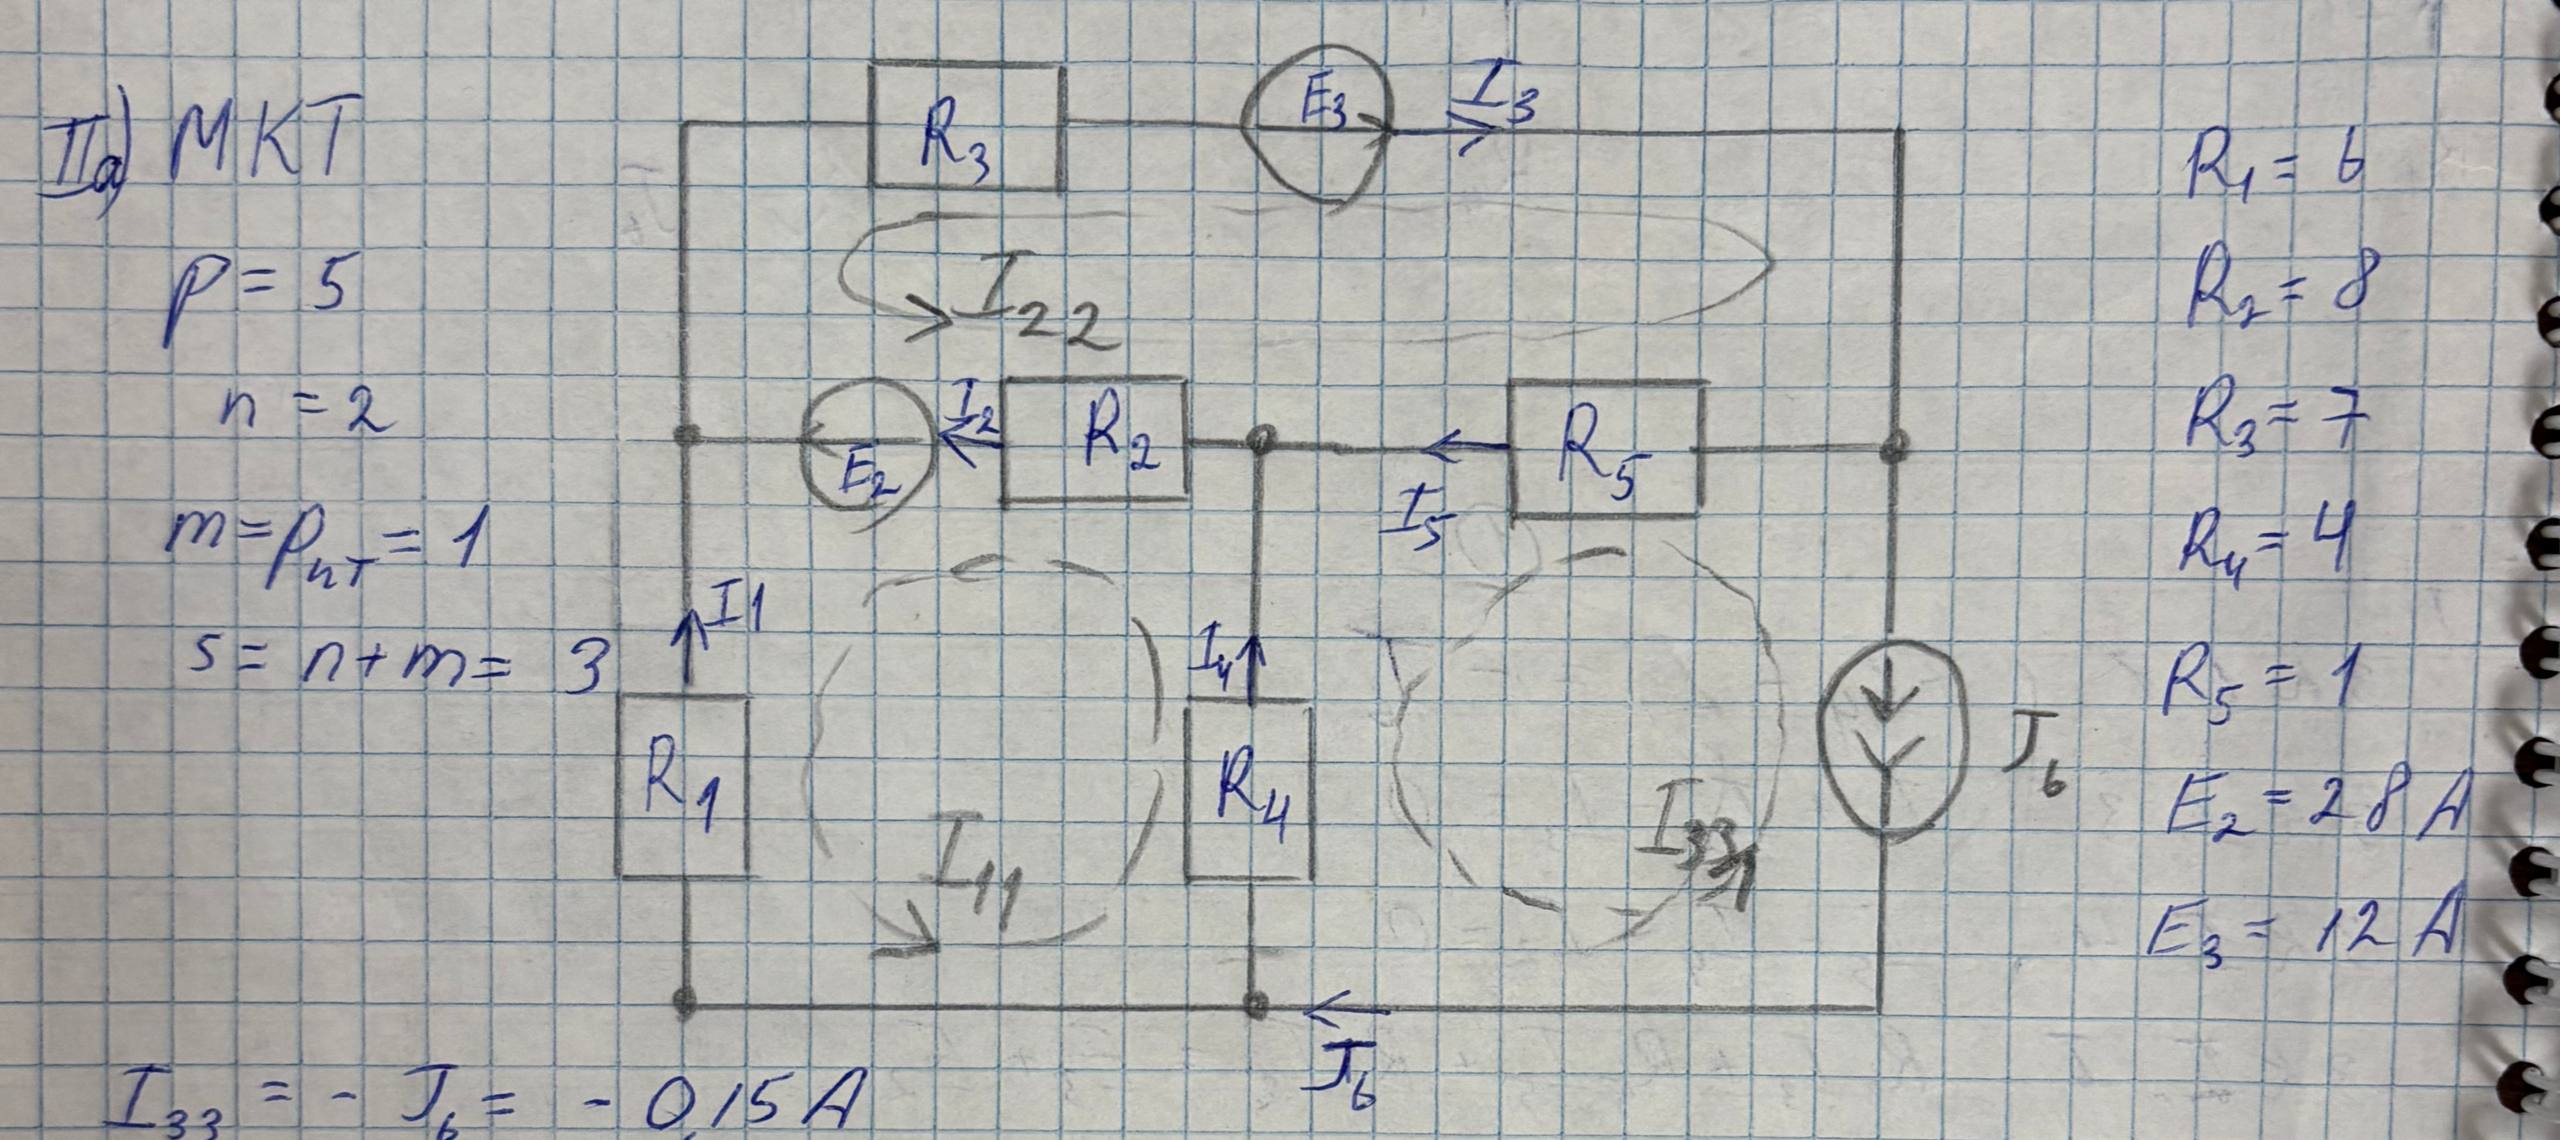 IIа) МКТ
p = 5
n = 2
m = pит = 1
s = n + m = 3
R3
E3
I3
I22
E2
I2
R2
I5
R5
I1
R1
I11
I4
R4
I33
J6
J6
R1 = 6
R2 = 8
R3 = 7
R4 = 4
R5 = 1
E2 = 28 А
E3 = 12 А
I33 = - J6 = - 0,15 А